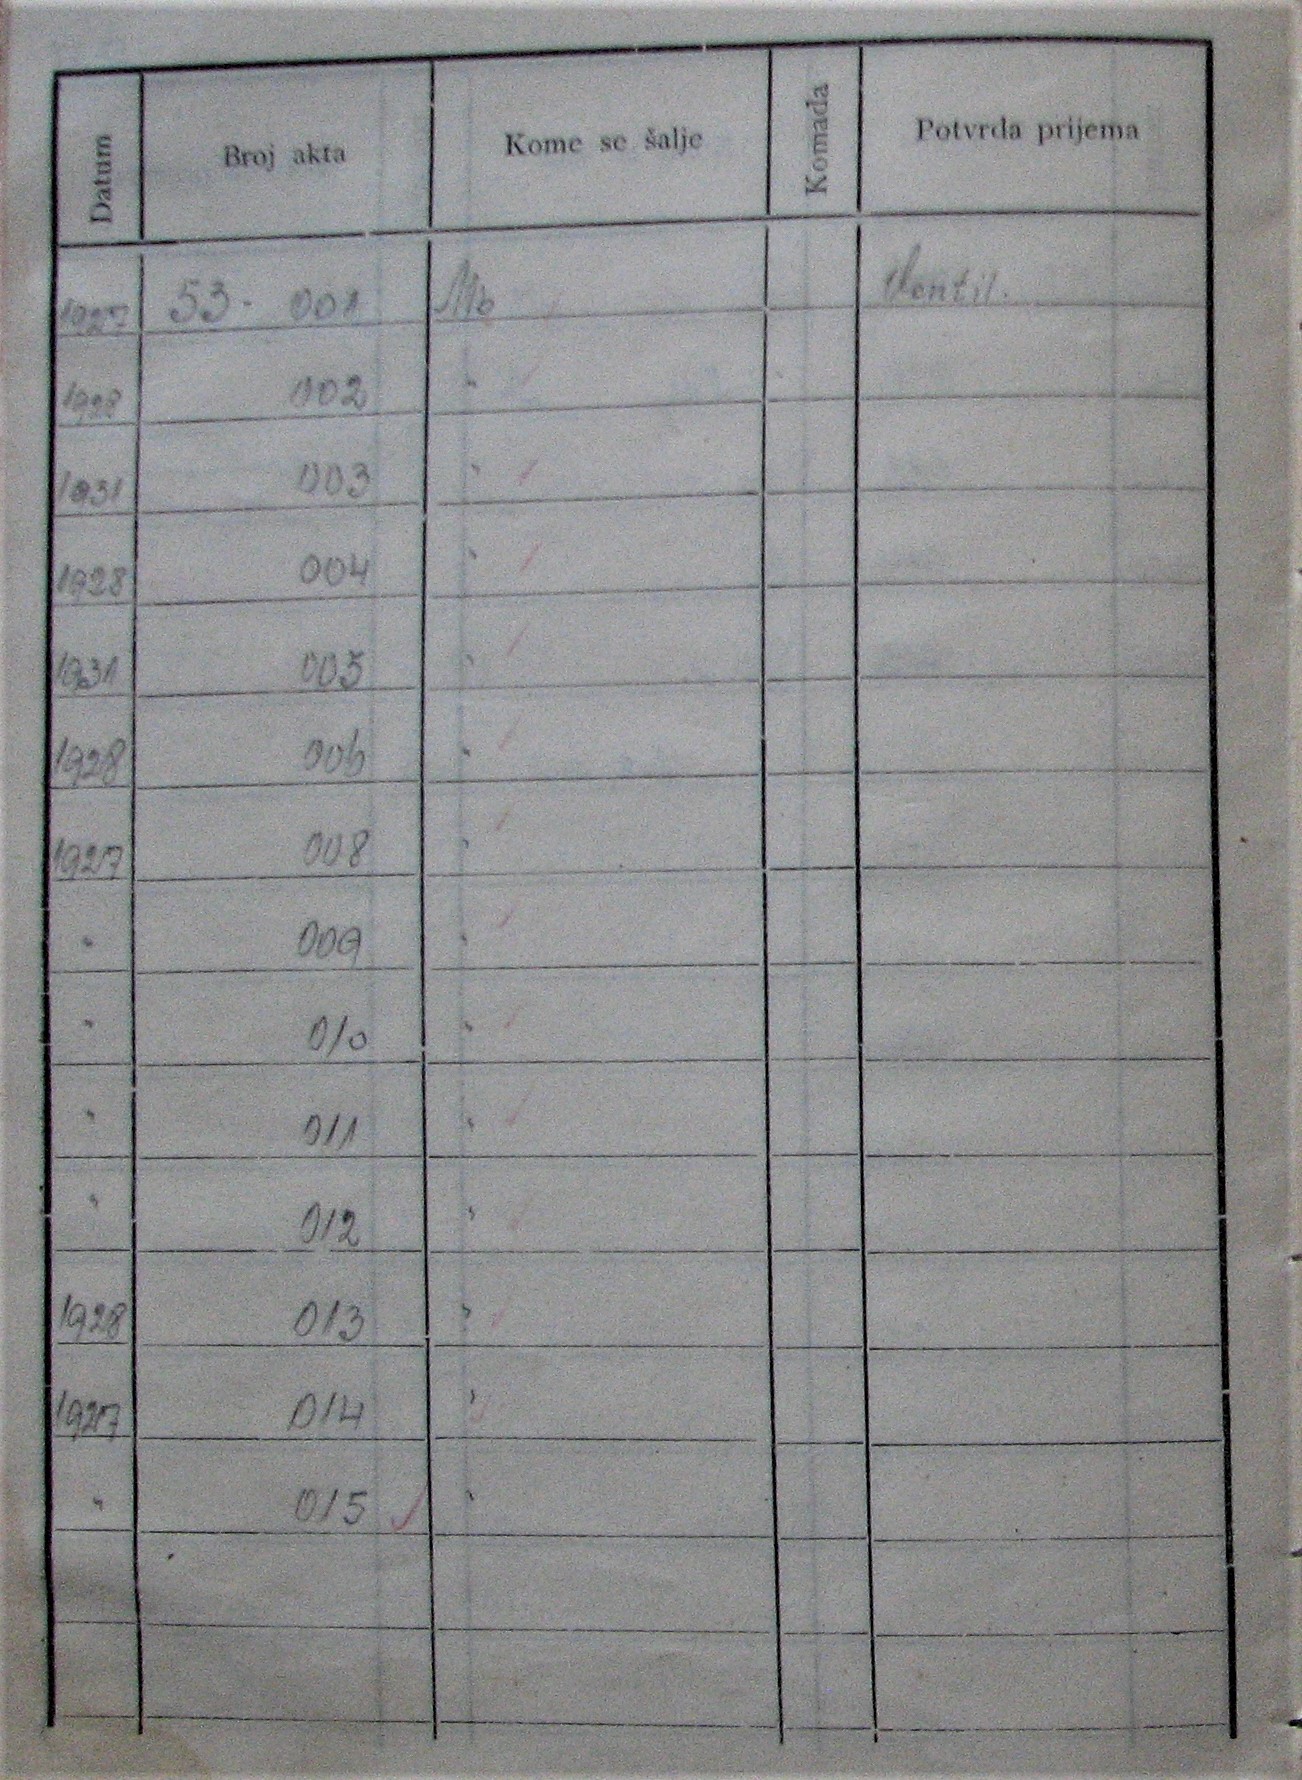 Datum Broj akta Kome se šalje Komada Potvrda prijema
1927 53 - 001 Mb Ventil.
1928 002 "
1931 003 "
1928 004 "
1931 005 "
1928 006 "
1927 008 "
" 009 "
" 010 "
" 011 "
" 012 "
1928 013 "
1927 014 "
" 015 "